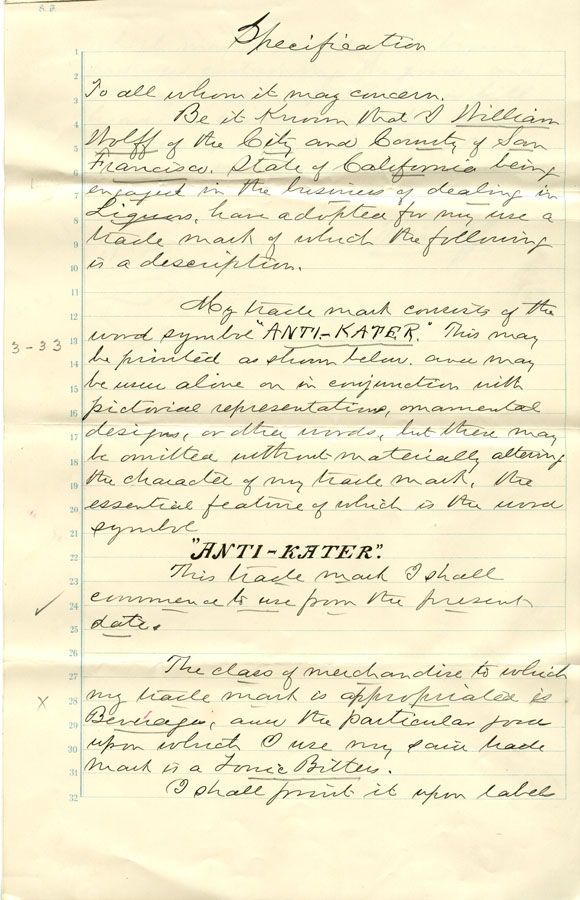 Specification
To all whom it may concern.
Be it Known that I William
Wolff of the City and County of San
Francisco. State of California being
engaged in the business of dealing in
Liquors, have adopted for my use a
trade mark of which the following
is a description.
My trade mark consists of the
word symbol "ANTI-KATER." This may
be printed as shown below. and may
be used alone or in conjunction with
pictorial representations, ornamental
designs, or other words, but these may
be omitted without materially altering
the character of my trade mark, the
essential feature of which is the word
symbol
"ANTI-KATER".
This trade mark I shall
commence to use from the present
date.
The class of merchandise to which
my trade mark is appropriated is
Beverages, and the particular good
upon which I use my said trade
mark is a Tonic Bitters.
I shall print it upon label
3-33
1
2
3
4
5
6
7
8
9
10
11
12
13
14
15
16
17
18
19
20
21
22
23
24
25
26
27
28
29
30
31
32